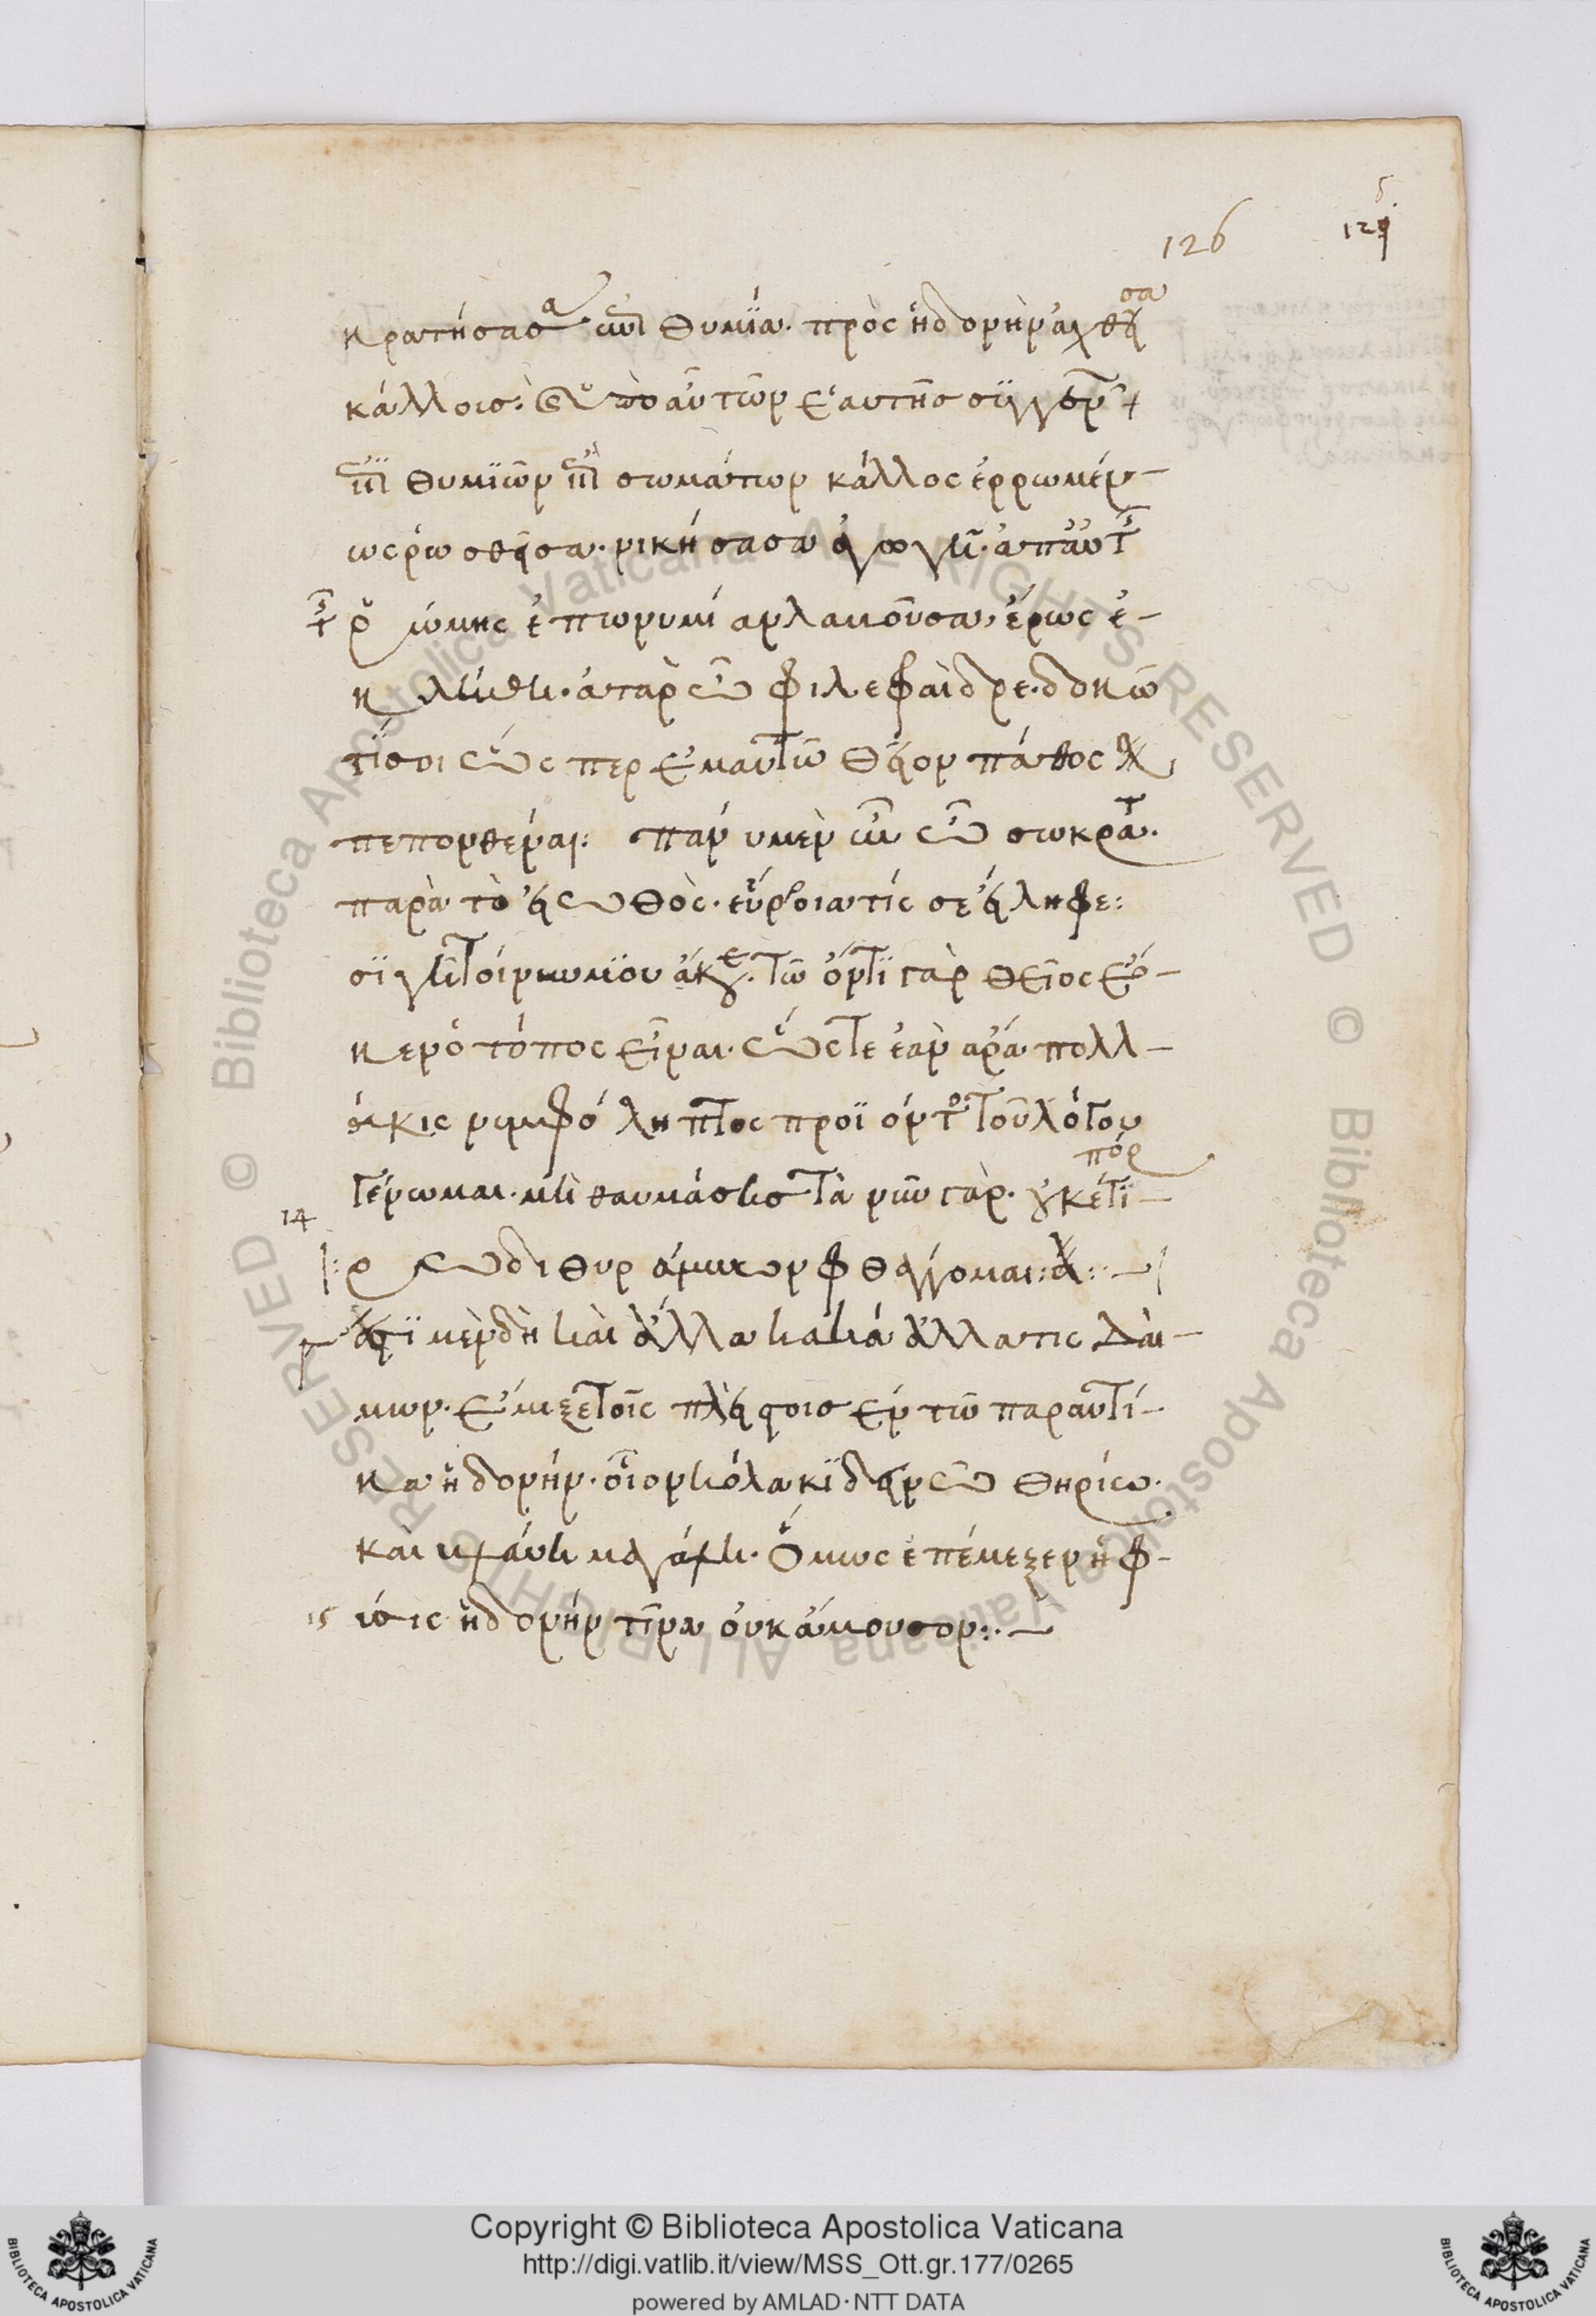 126
125
κρατήσασα ἐπιθυμία. πρὸς ἡδονὴν ἀχθεῖσα
κάλλους: καὶ ὑπὸ αὖ τῶν ἑαυτῆς συγγενῶν
ἐπιθυμιῶν ἐπὶ σωμάτων κάλλος ἐρρωμέν-
ως ῥωσθεῖσα. νικήσασα ἀγωγῇ. ἀπ' αὐτῆς
τῆς ῥώμης ἐπωνυμίαν λαμοῦσα, ἔρως ἐ-
κλήθη. ἀτὰρ ὦ φίλε φαῖδρε. δοκῶ
τί σοι ὥσπερ ἐμαυτῶ θεῖον πάθος
πεπονθέναι: πάνυ μὲν οὖν ὦ σώκρατες.
παρὰ τὸ εἰωθὸς. εὔροια τίς σε εἴληφε:
σιγῆ τοίνυν μου ἄκουε. τῶ ὄντι γὰρ θεῖος ἔοι-
κεν ὁ τόπος εἶναι. ὥστε ἐὰν ἄρα πολλ-
άκις νυμφόληπτος προϊόντος τοῦ λόγου
γένωμαι. μὴ θαυμάσης. τὰ νῦν γὰρ. οὐκέτι πόρ-
14
ρω διθυράμβων φθέγγομαι:
ἔστι μὲν δὴ καὶ ἄλλα κακά ἀλλά τις δαί-
μων. ἔμιξε τοῖς πλείστοις ἐν τῶ παραυτί-
κα ἡδονήν. οἷον κόλακι δεινῶ θηρίω.
καὶ βλάβη μεγάλη. ὅμως ἐπέμιξεν ἡ φ-
15 ύσις ἡδονήν τινα οὐκ ἄμουσον:
Copyright © Biblioteca Apostolica Vaticana
http://digi.vatlib.it/view/MSS_Ott.gr.177/0265
powered by AMLAD·NTT DATA